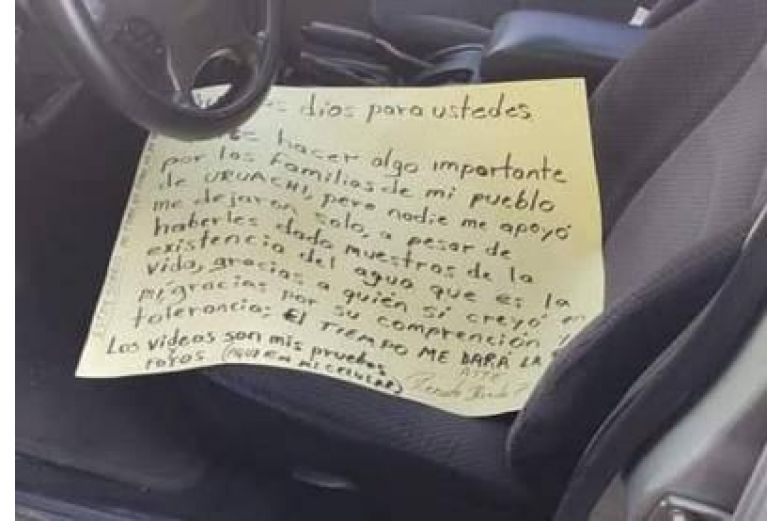 dias para ustedes
hacer algo importante
por las familias de mi pueblo
de URUACHI, pero nadie me apoyó
me dejaron solo, a pesar de
haberles dado muestras de la
existencia del agua que es la
vida, gracias a quién si creyó en
mi, gracias por su comprención y
tolerancia: El TIEMPO ME DARÁ LA
Los videos son mis pruebas
fotos (AQUÍ EN MI CELULAR)
ATTE